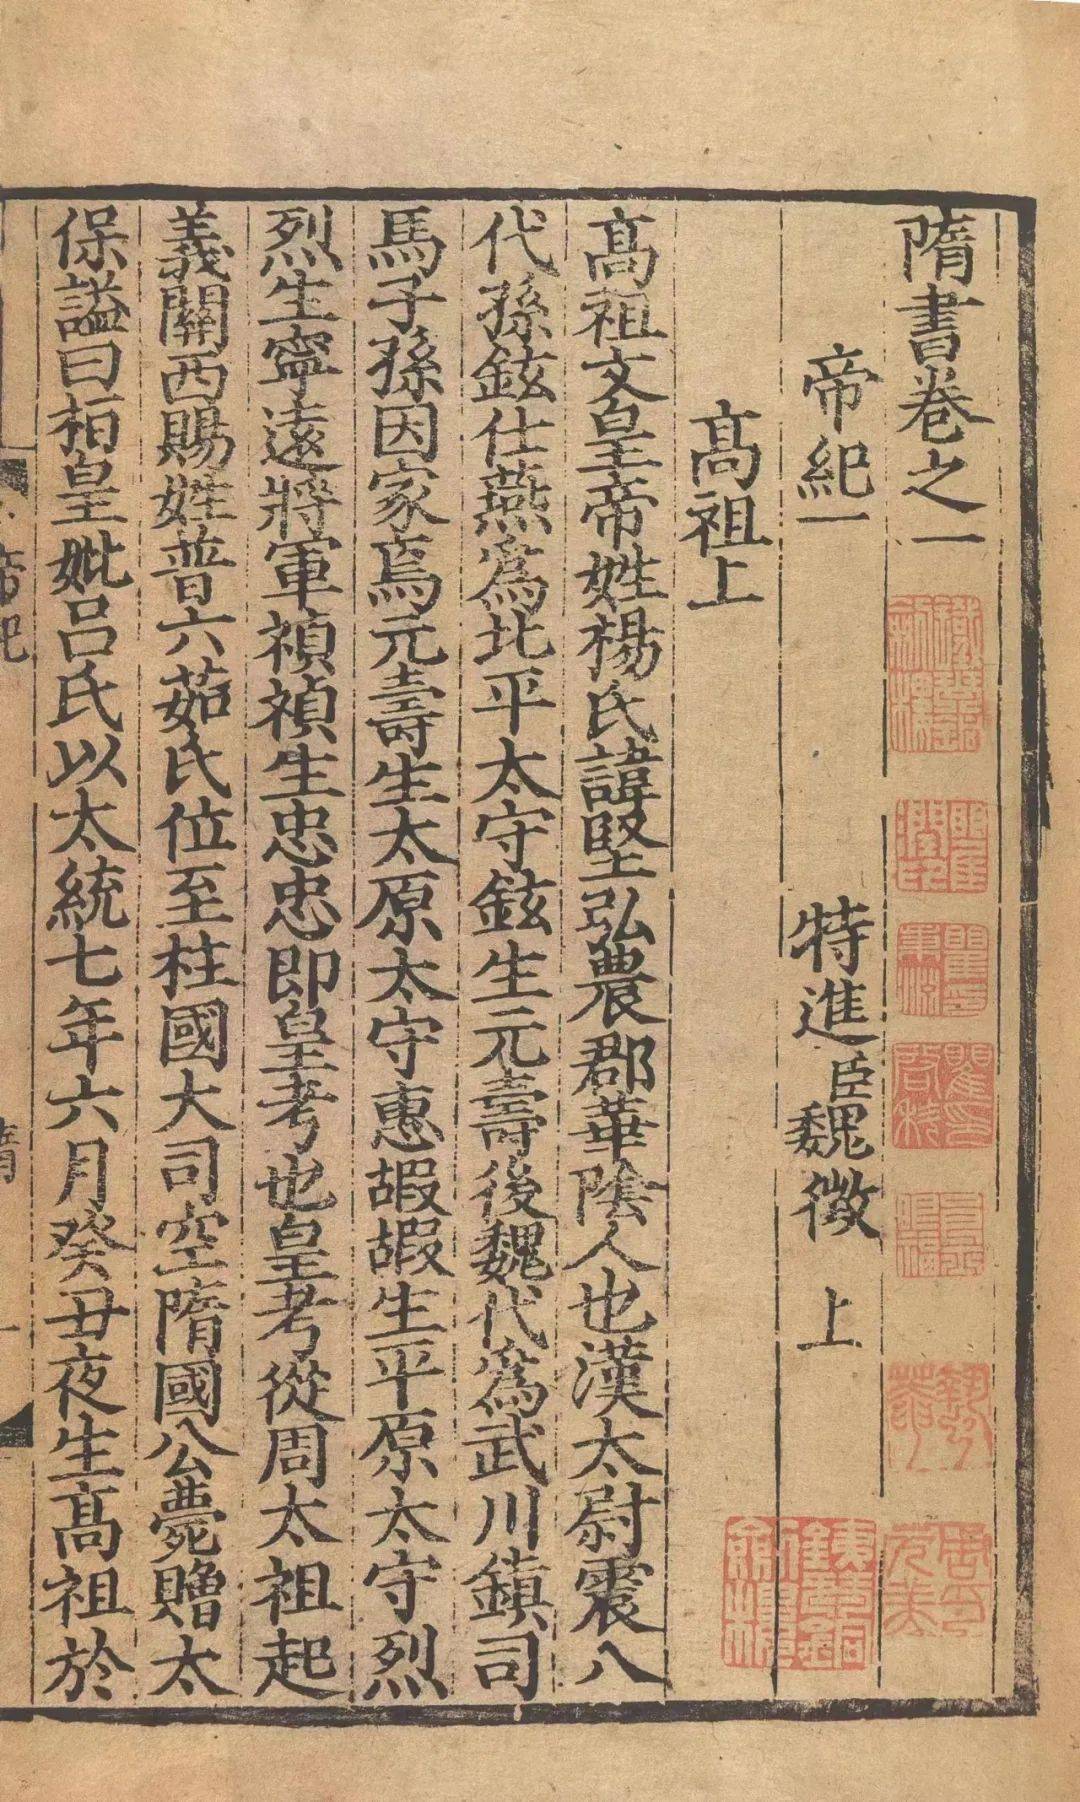 隋書卷之一
帝紀一 特進臣魏徵 上
髙祖上
髙祖文皇帝姓楊氏諱堅弘農郡華陰人也漢太尉震八
代孫鉉仕燕爲北平太守鉉生元壽後魏代爲武川鎮司
馬子孫因家焉元壽生太原太守惠嘏嘏生平原太守烈
烈生寧遠將軍禎禎生忠忠即皇考也皇考從周太祖起
義關西賜姓普六茹氏位至柱國大司空隋國公薨贈太
保謚曰桓皇妣呂氏以大統七年六月癸丑夜生髙祖於
帝紀
隋
一